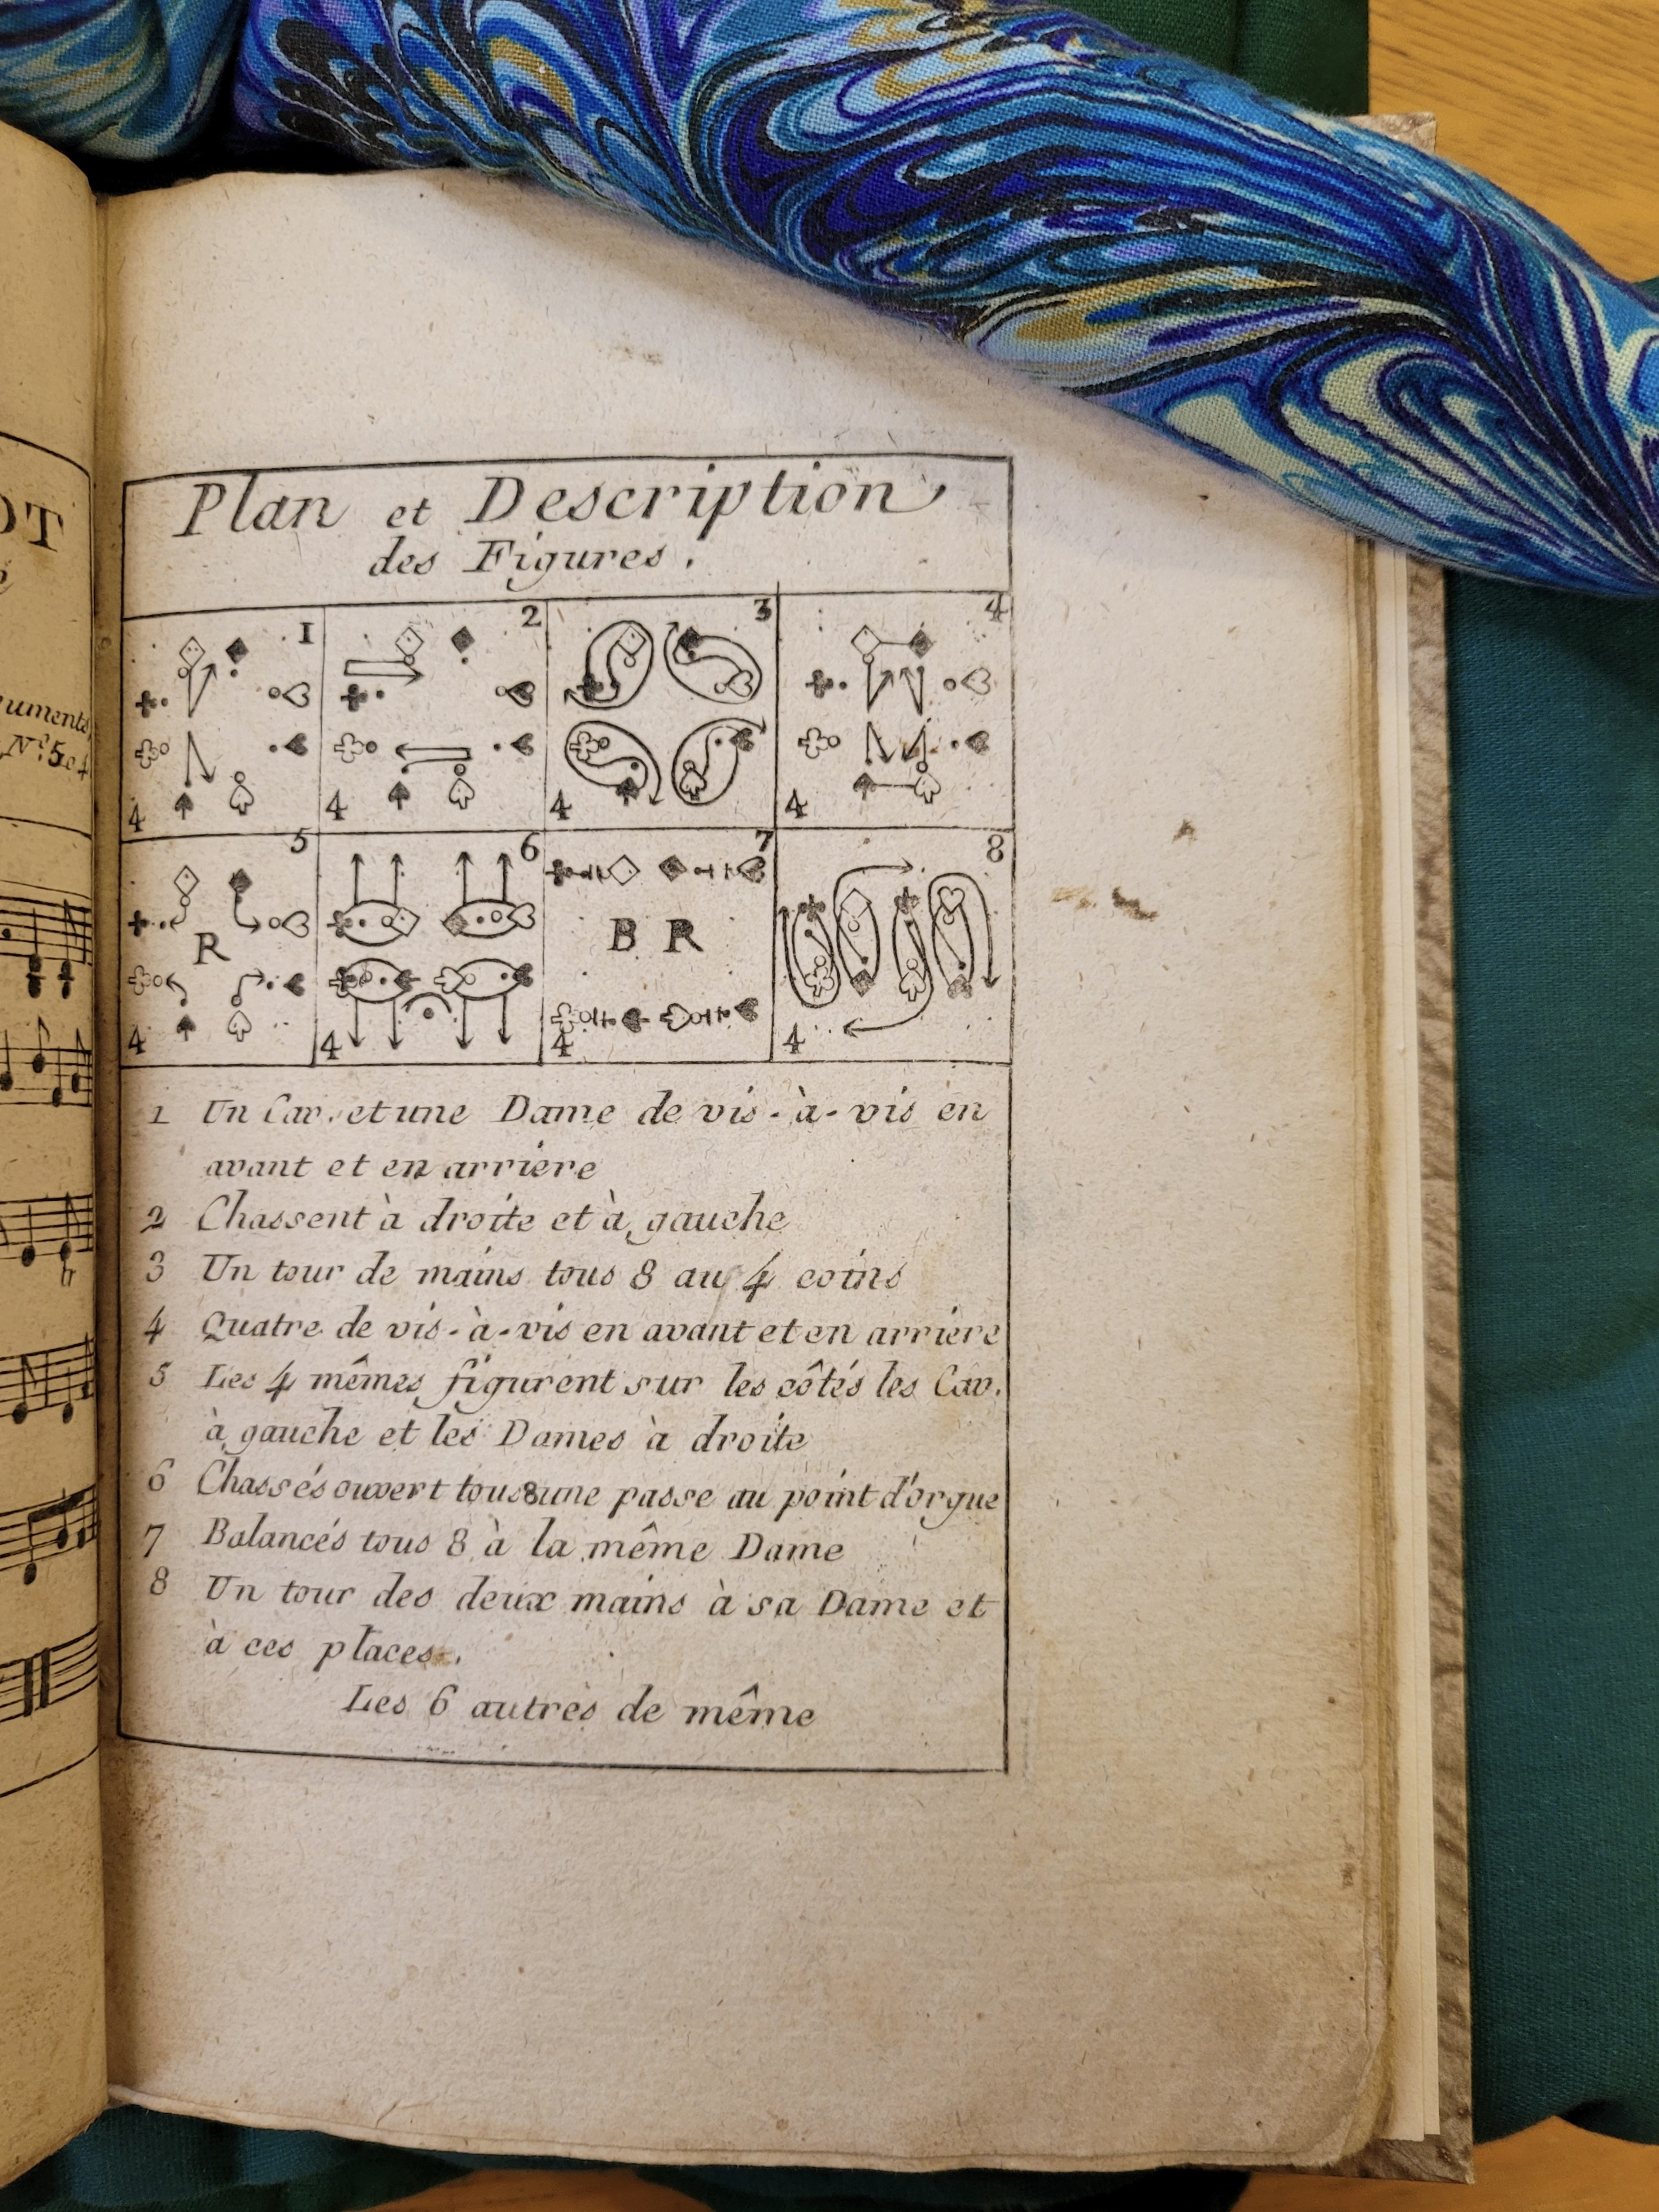 OT
uments
N.º 5 et
Plan et Description
des Figures.
1
2
3
4
4
4
4
4
5
6
7
8
R
B R
4
4
4
4
1 Un Cav. et une Dame de vis-à-vis en
avant et en arriere
2 Chassent à droite et à gauche
3 Un tour de mains tous 8 au 4 coins
4 Quatre de vis-à-vis en avant et en arriere
5 Les 4 mêmes figurent sur les côtés les Cav.
à gauche et les Dames à droite
6 Chassés ouvert tous 8 une passe au point d'orgue
7 Balancés tous 8 à la même Dame
8 Un tour des deux mains à sa Dame et
à ces places.
Les 6 autres de même